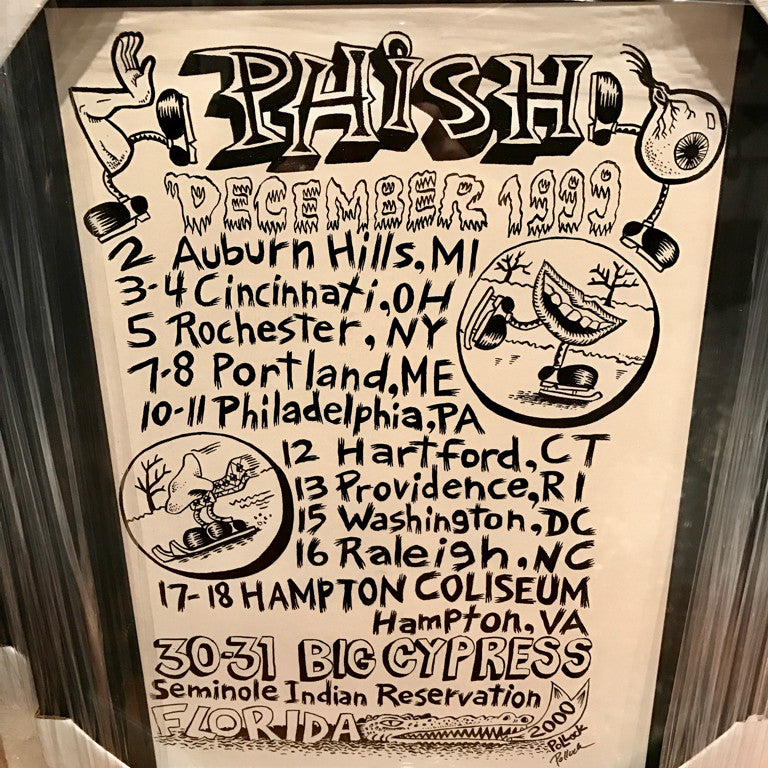 PHiSH
DECEMBER 1999
2 Auburn Hills, MI
3-4 Cincinnati, OH
5 Rochester, NY
7-8 Portland, ME
10-11 Philadelphia, PA
12 Hartford, CT
13 Providence, RI
15 Washington, DC
16 Raleigh, NC
17-18 HAMPTON COLISEUM
Hampton, VA
30-31 BIG CYPRESS
Seminole Indian Reservation
FLORIDA 2000
PoLLock
Pollock